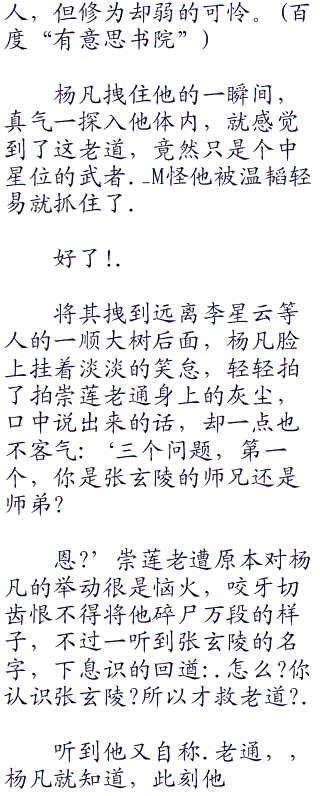 人，但修为却弱的可怜。(百
度“有意思书院”)
杨凡拽住他的一瞬间，
真气一探入他体内，就感觉
到了这老道，竟然只是个中
星位的武者._M怪他被温韬轻
易就抓住了.
好了!.
将其拽到远离李星云等
人的一顺大树后面，杨凡脸
上挂着淡淡的笑怠，轻轻拍
了拍崇莲老通身上的灰尘，
口中说出来的话，却一点也
不客气：‘三个问题，第一
个，你是张玄陵的师兄还是
师弟?
恩?’崇莲老遭原本对杨
凡的举动很是恼火，咬牙切
齿恨不得将他碎尸万段的样
子，不过一听到张玄陵的名
字，下息识的回道:.怎么?你
认识张玄陵?所以才救老道?.
听到他又自称.老通，，
杨凡就知道，此刻他